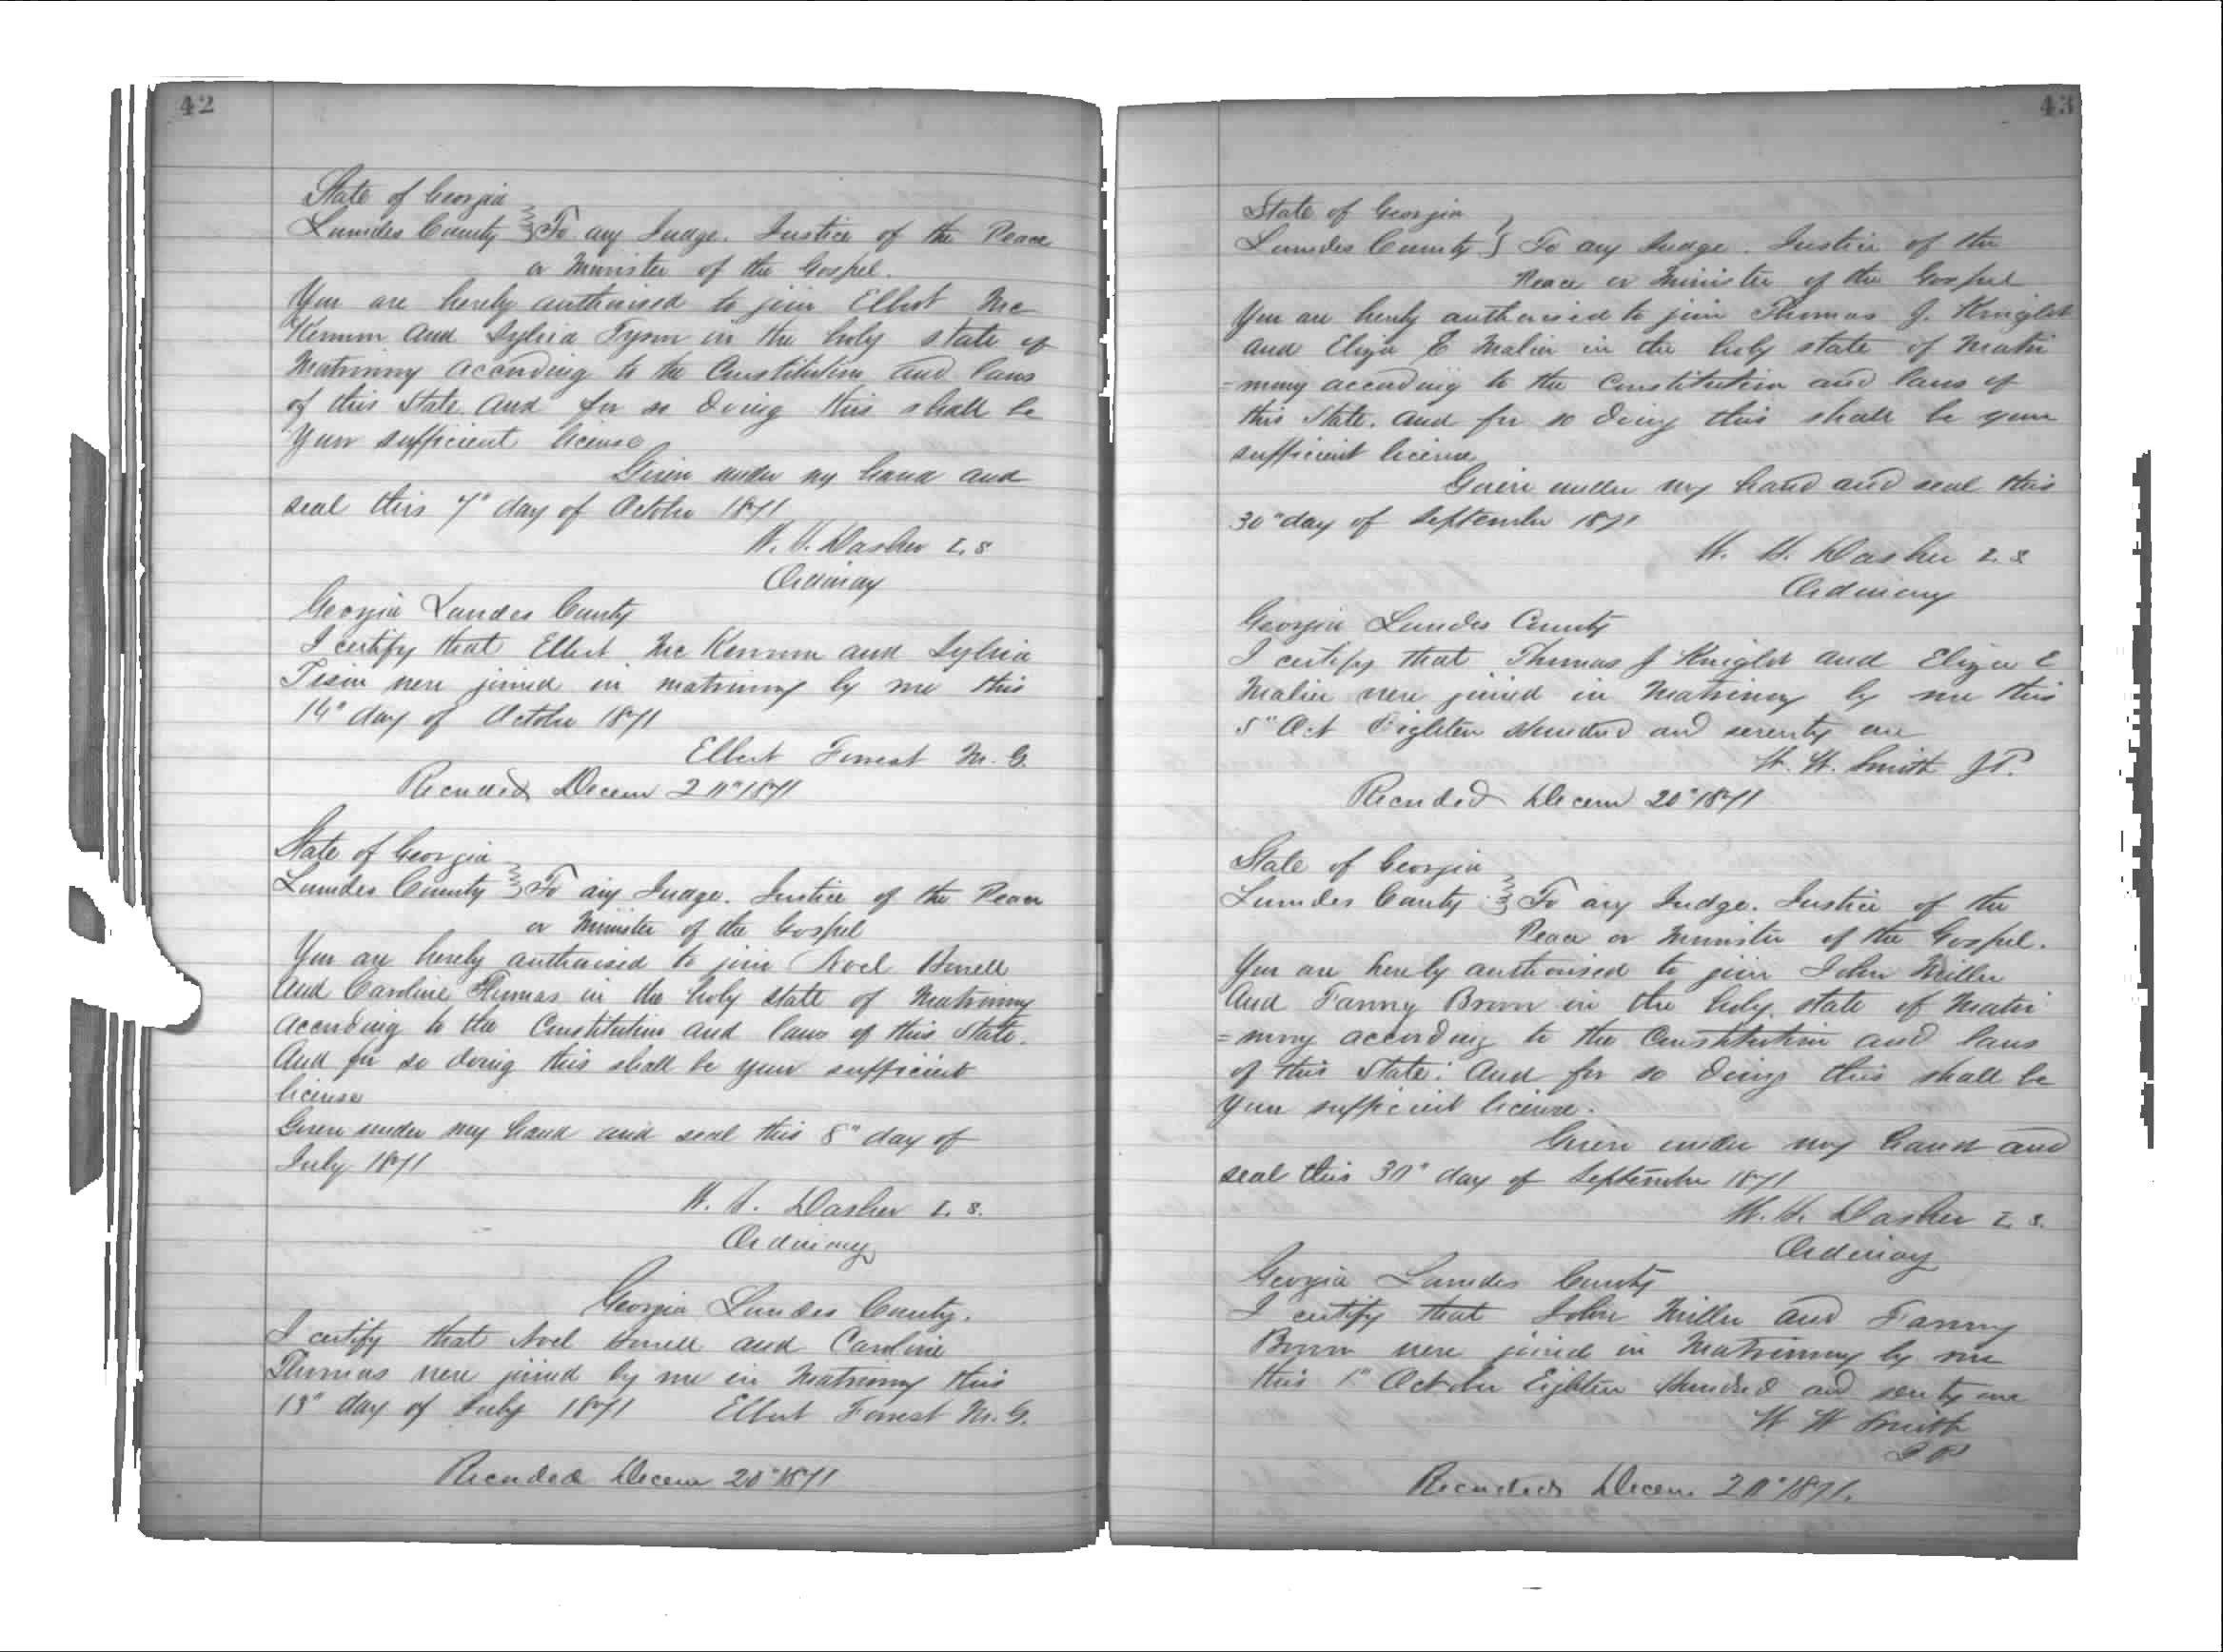 42
State of Georgia
Lowndes County } To any Judge. Justice of the Peace
or Minister of the Gospel.
You are hereby authorised to join Elbert Mc
Kennon and Sylvia Tyson in the holy state of
Matrimony according to the Constitution and laws
of this State. And for so doing this shall be
your sufficient license
Given under my hand and
seal this 7" day of October 1871
W. H. Dasher L. S.
Ordinary
Georgia Lowndes County
I certify that Elbert Mc Kennon and Sylvia
Tison were joined in matrimony by me this
14" day of October 1871
Elbert Forrest M. G.
Recorded Decem 20" 1871
State of Georgia
Lowndes County } To any Judge. Justice of the Peace
or Minister of the Gospel
You are hereby authorised to join Noel
and Caroline Thomas in the holy state of Matrimony
according to the Constitution and laws of this State.
And for so doing this shall be your sufficient
license
Given under my hand and seal this 8" day of
July 1871
W. H. Dasher L. S.
Ordinary
Georgia Lowndes County.
I certify that Noel and Caroline
Thomas were joined by me in Matrimony this
13" day of July 1871 Elbert Forrest M. G.
Recorded Decem 20" 1871
43
State of Georgia
Lowndes County. } To any Judge. Justice of the
Peace or Minister of the Gospel
You are hereby authorised to join Thomas J. Knight
and Eliza E Malier in the holy state of Matri
=mony according to the Constitution and laws of
this State. And for so doing this shall be your
sufficient license
Given under my hand and seal this
30" day of September 1871
W. H. Dasher L. S.
Ordinary
Georgia Lowndes County
I certify that Thomas J Knight and Eliza E
Malier were joined in Matrimony by me this
5" Oct Eighteen Hundred and seventy one
W. W. Smith J P.
Recorded Decem 20" 1871
State of Georgia
Lowndes County. } To any Judge. Justice of the
Peace or Minister of the Gospel.
You are hereby authorised to join John Miller
And Fanny Brown in the holy state of Matri
=mony according to the Constitution and laws
of this State. And for so doing this shall be
your sufficient license.
Given under my hand and
seal this 30" day of September 1871
W. H. Dasher L. S.
Ordinary
Georgia Lowndes County
I certify that John Miller and Fanny
Brown were joined in Matrimony by me
this 1" October Eighteen Hundred and seventy one
W W Smith
J P
Recorded Decem. 20" 1871.